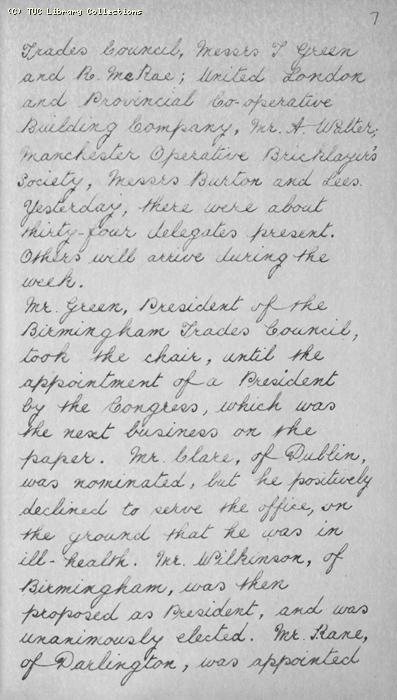 (C) TUC Library Collections
7
Trades Council, Messrs T Green
and R. McRae; United London
and Provincial Co-operative
Building Company, Mr. A. Walter;
Manchester Operative Bricklayer's
Society, Messrs Burton and Lees.
Yesterday, there were about
thirty-four delegates present.
Others will arrive during the
week.
Mr. Green, President of the
Birmingham Trades Council,
took the chair, until the
appointment of a President
by the Congress, which was
the next business on the
paper. Mr. Clare, of Dublin,
was nominated, but he positively
declined to serve the office, on
the ground that he was in
ill-health. Mr. Wilkinson, of
Birmingham, was then
proposed as President, and was
unanimously elected. Mr. Kane,
of Darlington, was appointed